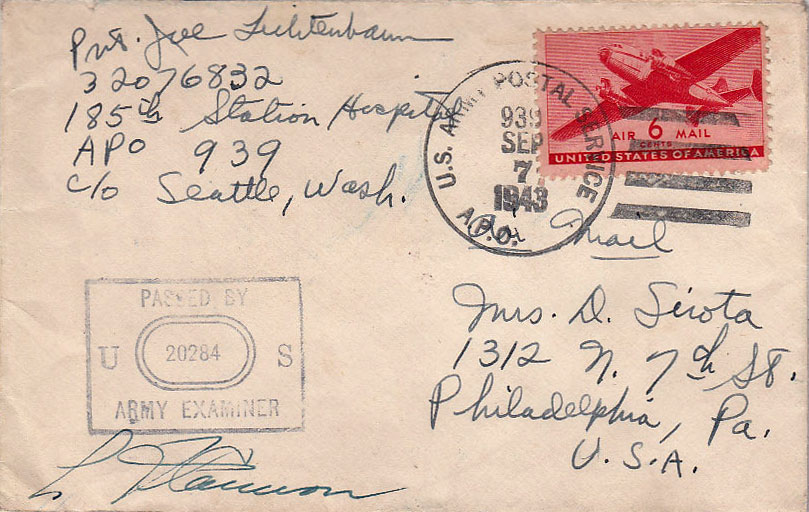 Pvt. Joe Lichtenbaum
32076832
185th Station Hospital
APO 939
c/o Seattle, Wash.
U.S. ARMY POSTAL SERVICE
939
SEP
7
1943
A.P.O.
AIR 6 MAIL
CENTS
UNITED STATES OF AMERICA
Air Mail
Mrs. D. Sirota
1312 N. 7th St.
Philadelphia, Pa.
U.S.A.
PASSED BY
U 20284 S
ARMY EXAMINER